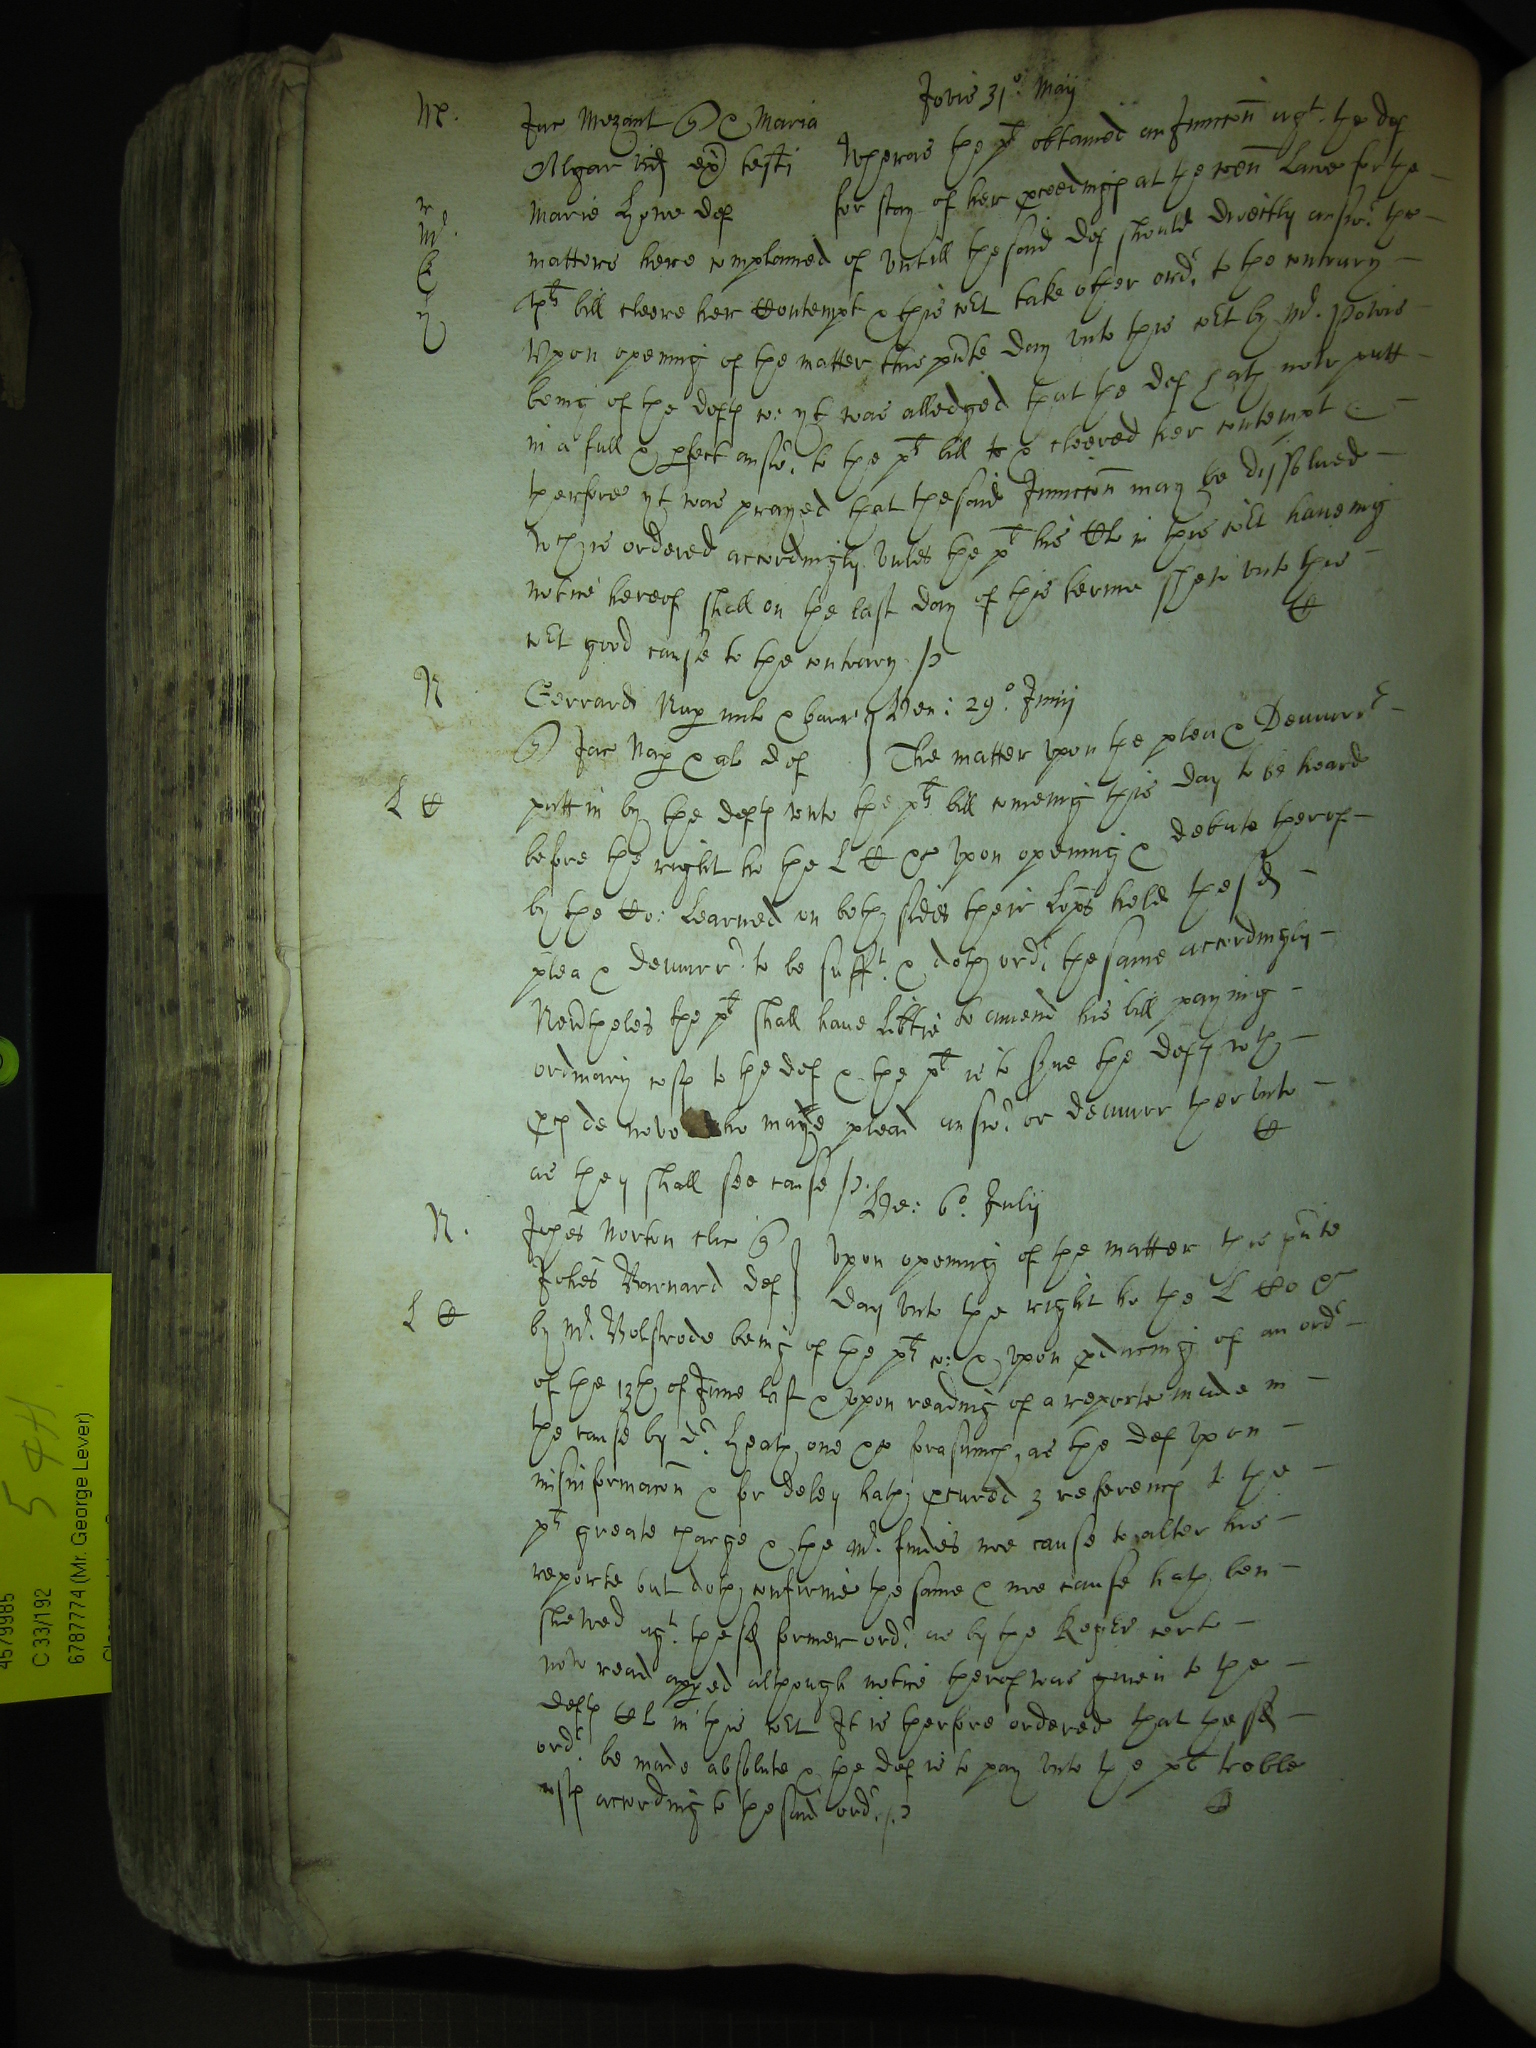 Jovis 31o. Maij
Jac Mezant q & Maria
Algar vid exp testi Wheras the plt obtained an Iniuncon agt. the def
Marie Howe def for stay of her pceedings at the comon Lawe for the
matters here complained of vntill the said def should directly answ: the
plts bill cleere her Contempt & this cort take other ordr. to the contrary
Vpon opening of the matter this pnte day vnto this cort by Mr. Powis
being of the defts co: yt was alledged that the def hath now putt
in a full & pfect answr. to the plts bill & cleered her contempt
therfore yt was prayed that the said Iniuncon may be dissolued
Wch is ordered accordingly vnles the plt his Clo in this cort haueing
notice hereof shall on the last day of this terme shew vnto this
cort good cause to the contrary
N
Gerrard Nap milt & barr q Ven: 29o. Junij
q Jac Nap & al def The matter vpon the plea & Demurrr
L C
putt in by the defts vnto the plts bill comeing this day to be heard
before the right ho the L C &c Vpon opening & debate therof
by the Co: Learned on both sides their Lopps held the sd
plea & demurr: to be sufft. & doth ordr the same accordingly
Neutheles the plt shall haue Libtie to amend his bill paying
ordinary costs to the def & the plt is to serue the defts wth
pces de novo who maye plead answr: or demurr thervnto
as they shall see cause
N.
Ve: 6o. Julij
Johes Norton clic q Vpon opening of the matter this pnte
Johes Barnard def day vnto the right ho the L Co &c
L C
by Mr. Bolstrode being of the plts co: & vpon pducing of an ordr
of the 13th of June last & vpon reading of a reporte made in
the cause by Dr. Heath one &c forasmuch as the def vpon
misinformacon & for deley hath pcured 3 references to the
plts greate charge & the Mr. findes noe cause to alter his
reporte but doth confirme the same & noe cause hath ben
shewed agt. the sd former ordr: as by the Regrs certe
now read appred although notice therof was giuen to the
defts Cl in this cort It is therfore ordered that the sd
ordr. be made absolute & the def is to pay vnto the plt treble
costs according to the said ordr.
4579985
C 33/192
6787774 (Mr. George Lever)